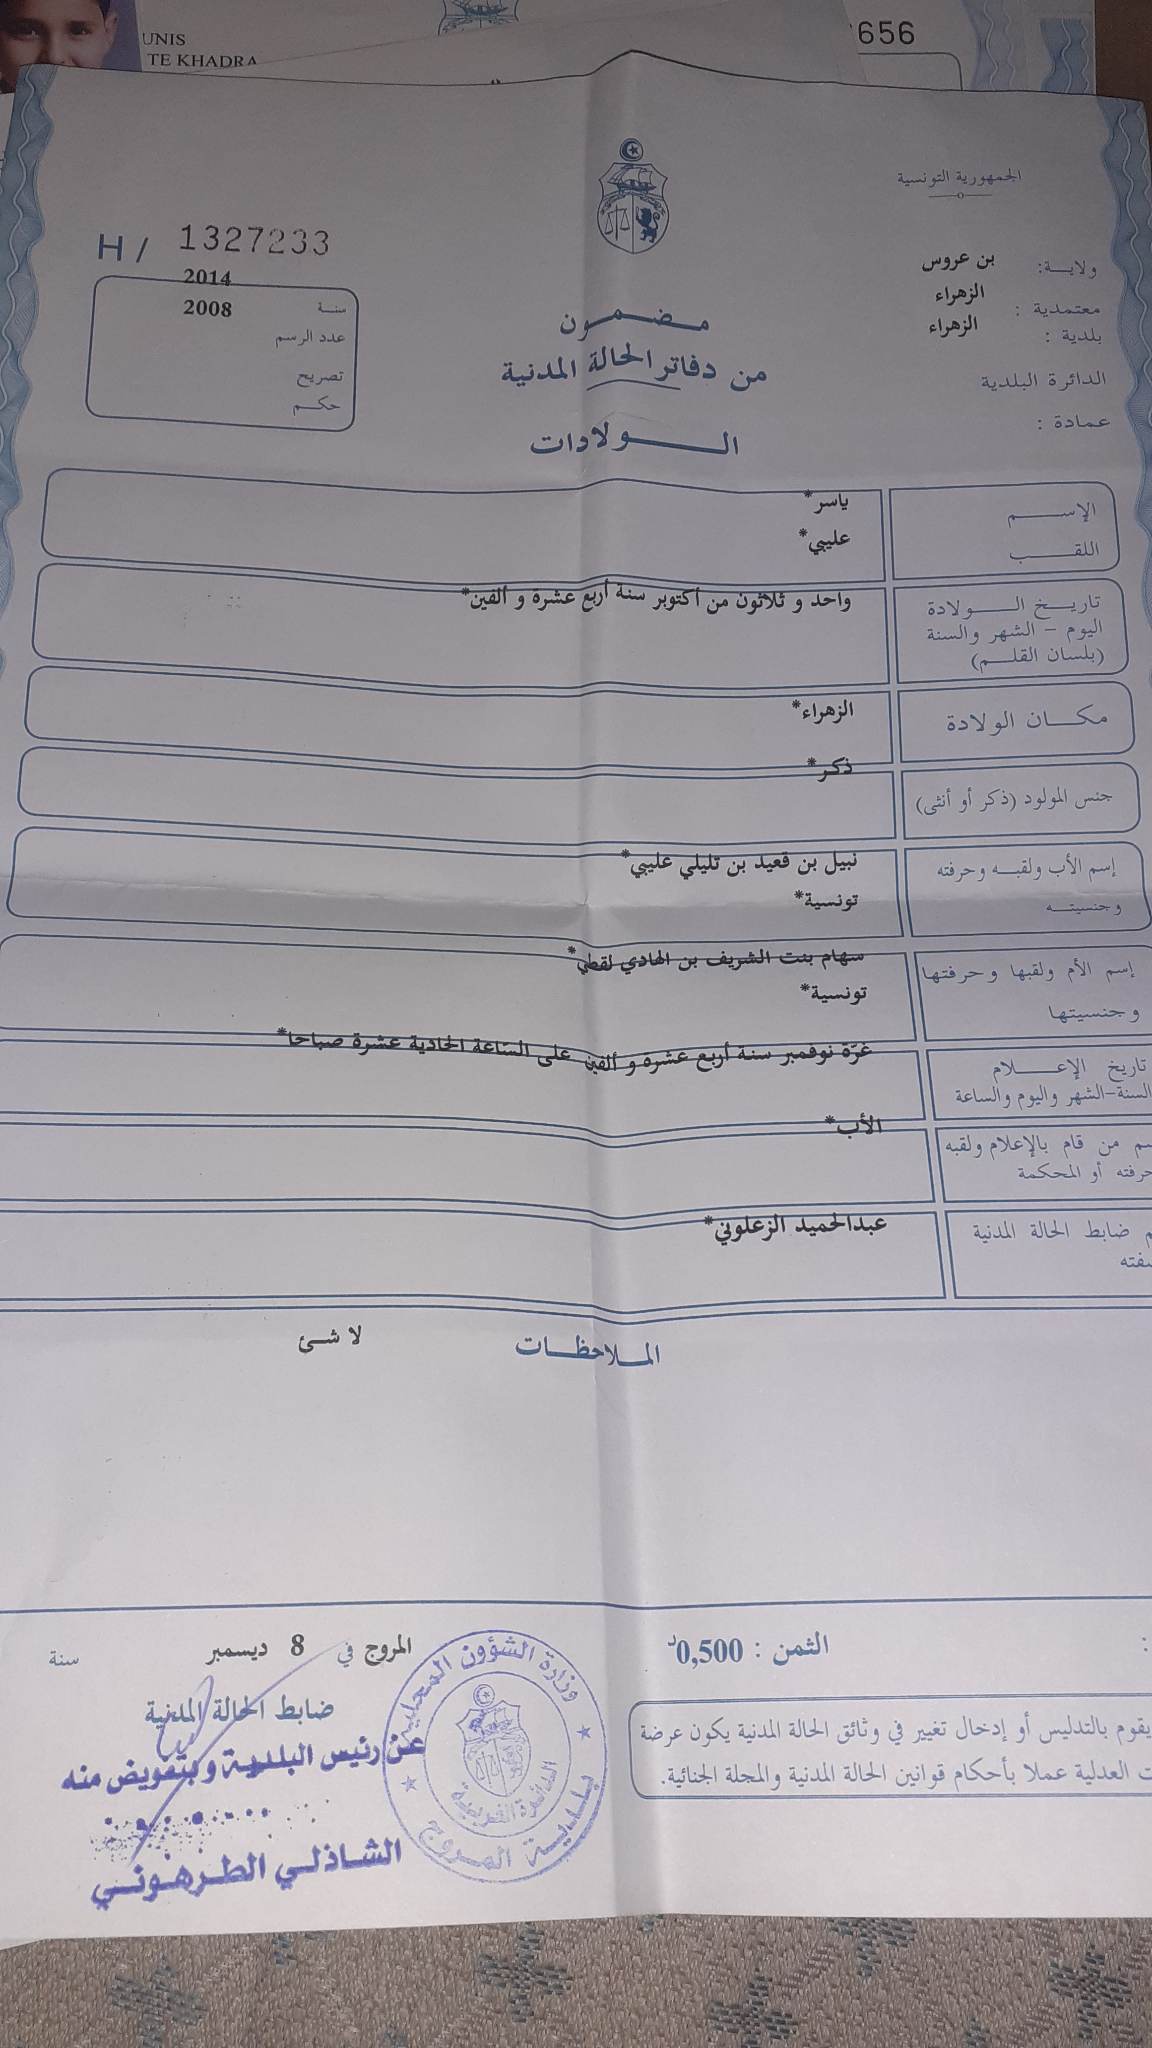 UNIS
TE KHADRA
656
الجمهورية التونسية
H / 1327233
ولاية: بن عروس
معتمدية : الزهراء
بلدية : الزهراء
الدائرة البلدية
عمادة :
2014
سنة 2008
عدد الرسم
تصريح
حكم
مضمون
من دفاتر الحالة المدنية
الولادات
الإسم ياسر*
اللقب عليبي*
تاريخ الولادة واحد و ثلاثون من أكتوبر سنة أربع عشرة و ألفين*
اليوم – الشهر والسنة
(بلسان القلم)
مكان الولادة الزهراء*
جنس المولود (ذكر أو أنثى) ذكر*
إسم الأب ولقبه وحرفته نبيل بن قعيد بن تليلي عليبي*
وجنسيته تونسية*
إسم الأم ولقبها وحرفتها سهام بنت الشريف بن الهادي لقطي*
وجنسيتها تونسية*
تاريخ الإعلام غرّة نوفمبر سنة أربع عشرة و ألفين على السّاعة الحادية عشرة صباحا*
السنة-الشهر واليوم والساعة
سم من قام بالإعلام ولقبه الأب*
حرفته أو المحكمة
م ضابط الحالة المدنية عبدالحميد الزعلوني*
الملاحظات لا شئ
: الثمن : 0,500د
المروج في 8 ديسمبر سنة
ضابط الحالة المدنية
عن رئيس البلدية وبتفويض منه
الشاذلي الطرهوني
وزارة الشؤون المحلية
بلدية المروج
يقوم بالتدليس أو إدخال تغيير في وثائق الحالة المدنية يكون عرضة
ت العدلية عملا بأحكام قوانين الحالة المدنية والمجلة الجنائية.